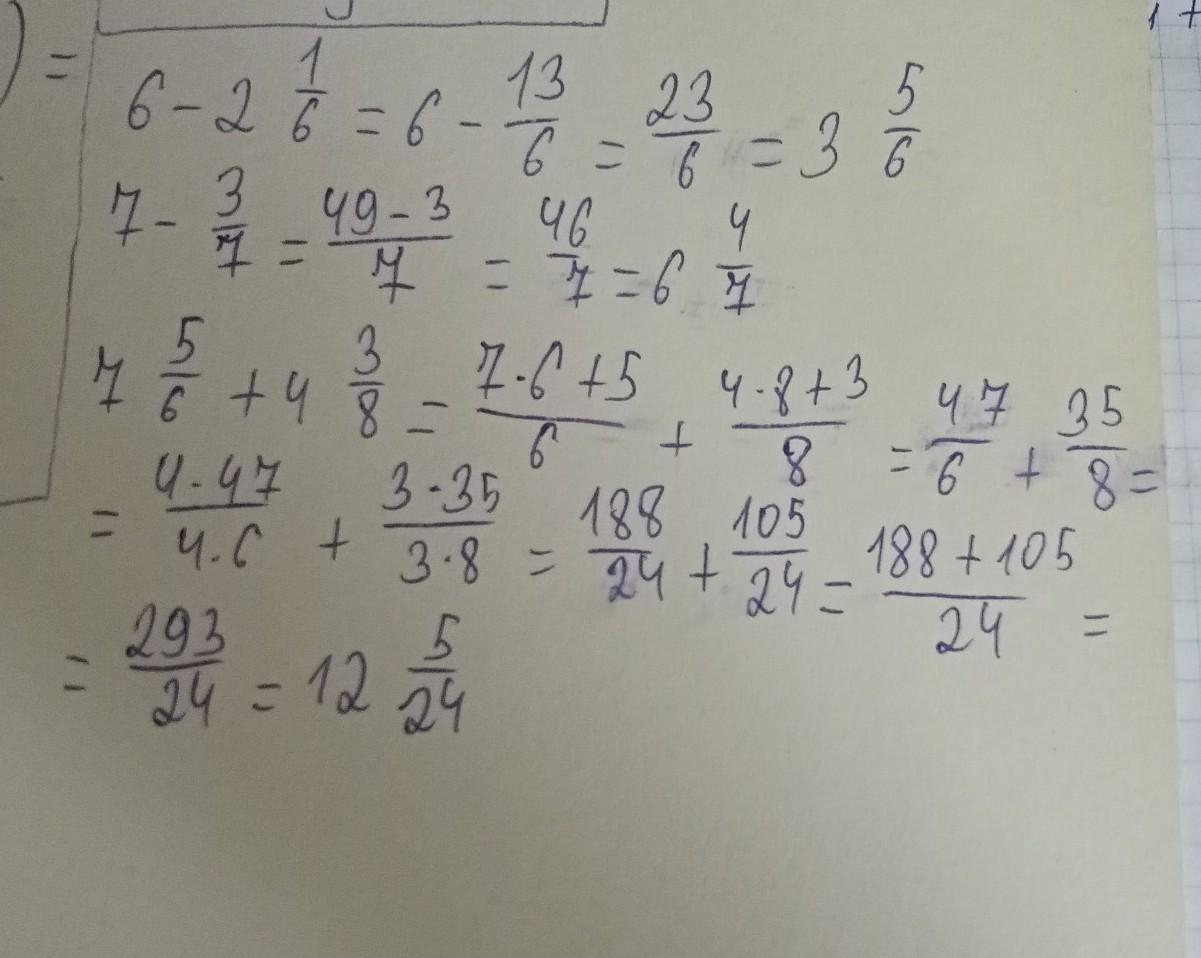 ) =
6 - 2 1/6 = 6 - 13/6 = 23/6 = 3 5/6
7 - 3/7 = (49 - 3)/7 = 46/7 = 6 4/7
7 5/6 + 4 3/8 = (7·6+5)/6 + (4·8+3)/8 = 47/6 + 35/8 =
= (4·47)/(4·6) + (3·35)/(3·8) = 188/24 + 105/24 = (188+105)/24 =
= 293/24 = 12 5/24